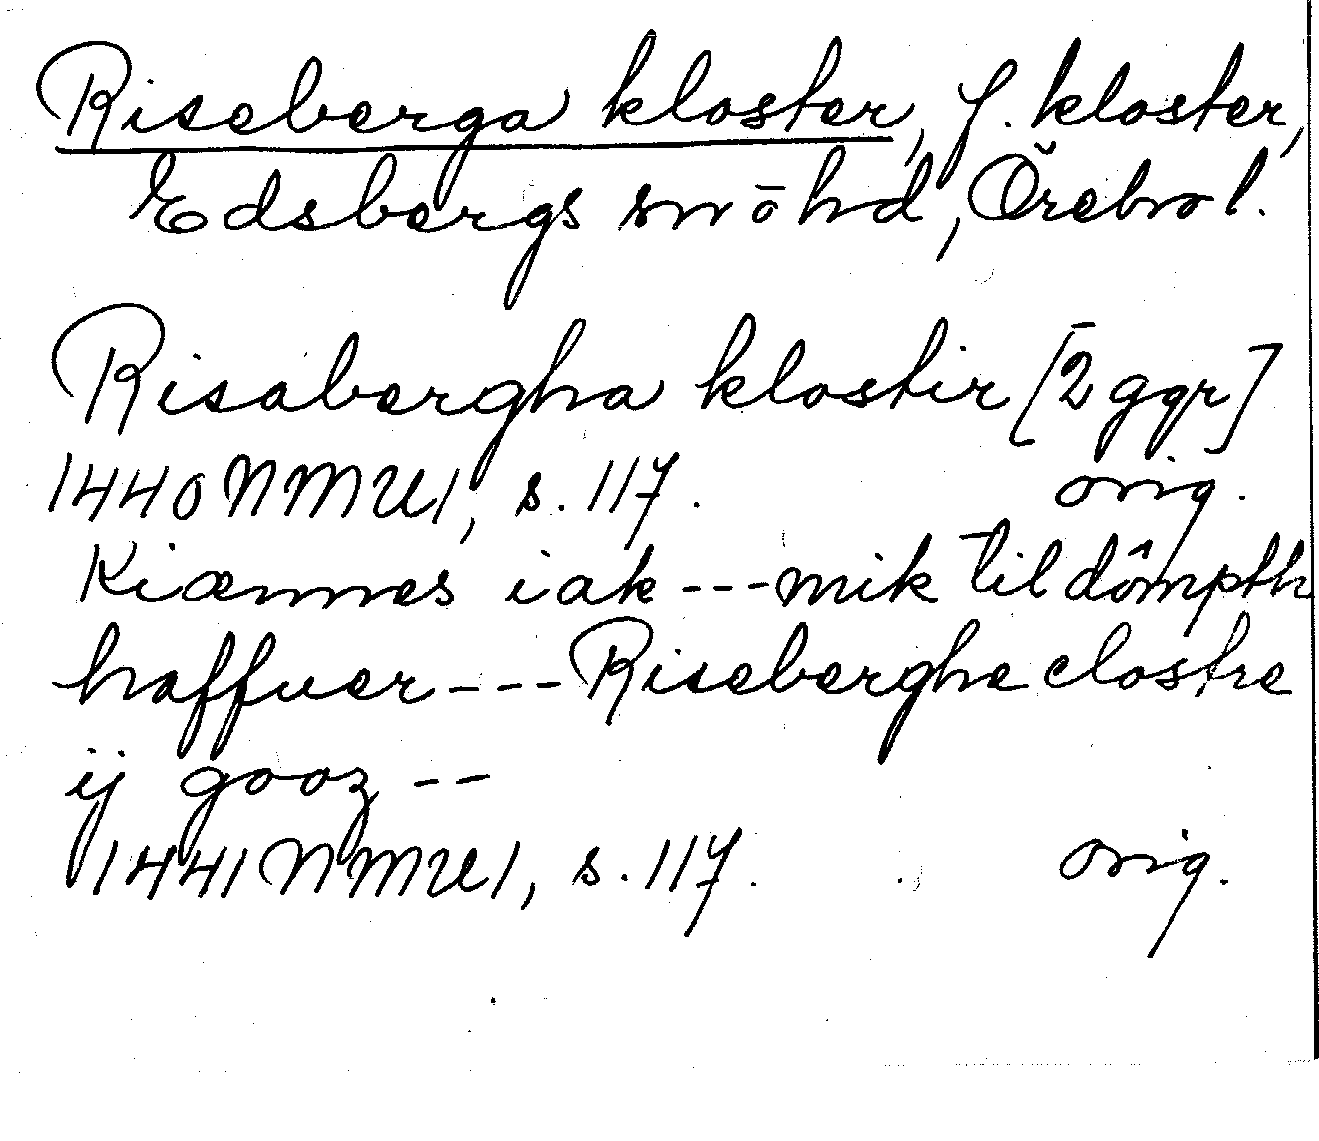 Riseberga kloster, f. kloster,
Edsbergs sn o hd, Örebro l.
Risabergha klostir [2 ggr]
1440 NMU1, s. 117. orig.
Kiænnes iak --- mik til dômpth
haffuer --- Riseberghe clostre
ij gooz --
1441 NMU1, s. 117. orig.